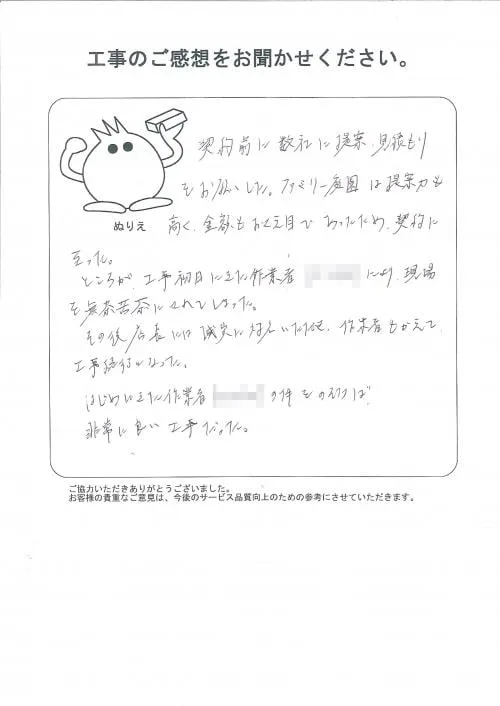 工事のご感想をお聞かせください。
契約前に数社に提案、見積もり
をお願いした。ファミリー庭園は提案力も
ぬりえ
高く、金額もおさえ目であったため、契約に
至った。
ところが、工事初日にきた作業者 により、現場
を無茶苦茶にされてしまった。
その後店長には誠実に対応いただき、作業者もかえて、
工事続行となった。
はじめにきた作業者 の件をのぞけば
非常に良い工事だった。
ご協力いただきありがとうございました。
お客様の貴重なご意見は、今後のサービス品質向上のための参考にさせていただきます。